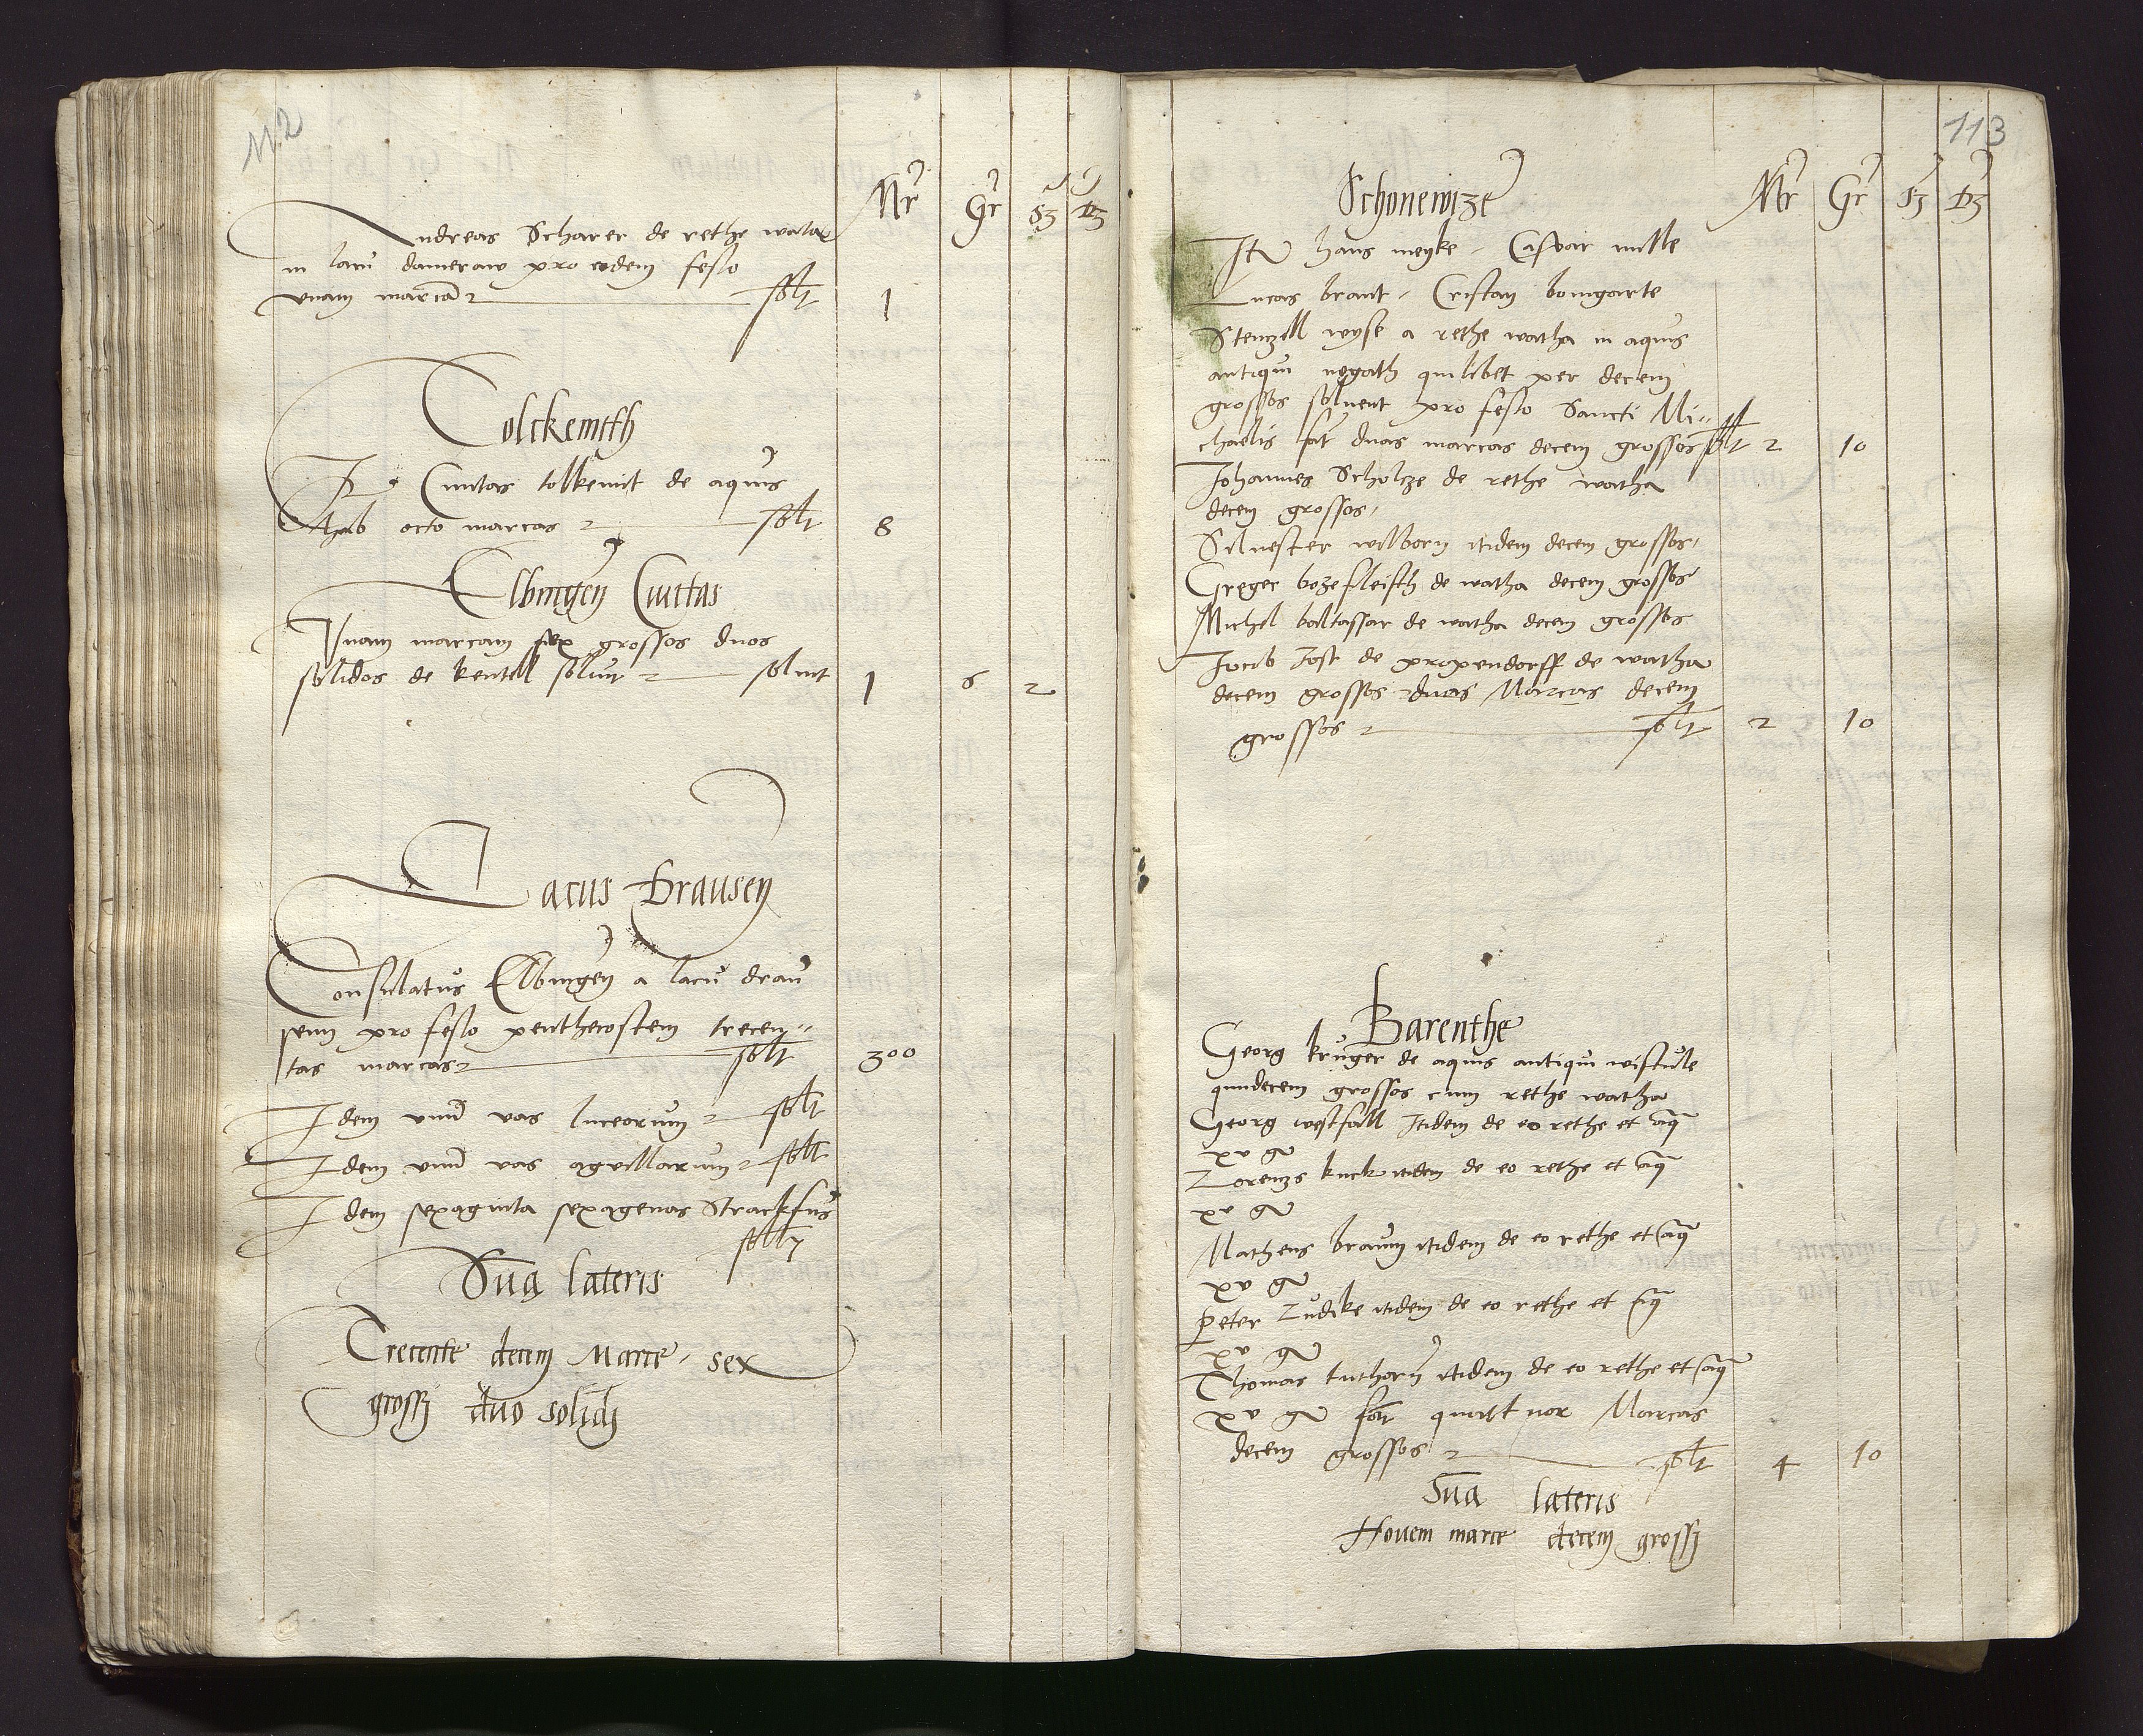 112
Mr Gr ß ₰
Andreas Scharer de rethe wata
in lacu dameraw pro eodem festo
vnam marcã solt 1
Tolckemith
Ciuitas tolkemit de aquis
Hab octo marcas solt 8
Elbingen Ciuitas
Vnam marcam sex grossos duos
solidos de kentell soluit soluit 1 6 2
Lacus Drausen
Consulatus Elbingen a lacu drau
senn pro festo penthecostem trecen-
tas marcas solt 300
Idem vnũ vas luceorum solt
Idem vnũ vas agvillarum solt
Idem sexaginta sexagenas Strackfus
solt
Sũa lateris
Trecente decem Marce sex
grossj duo solidj
113
Schonewize Mr Gr ß ₰
Itẽ hans meyke Caspar mille
Lucas brant Cristan bomgarte
Stenzell wyse a rethe watha in aquis
antiqui nogath quilibet per decem
grossos soluent pro festo Sancti Mi-
chaelis fat duas marcas decem grossos solt 2 10
Johannes Scholcze de rethe watha
decem grossos
Siluester wilborn itidem decem grossos
Greger bozefleisch de watha decem grossos
Michel baltassar de watha decem grossos
Jocub Jost de propendorff de watha
decem grossos duas Marcas decem
grossos solt 2 10
Barenthe
Georg kruger de aquis antiqui vistule
quindecem grossos cum rethe watha
Georg westfall Itidem de eo rethe et aq̃
xv gr
Lorenzs kuck itidem de eo rethe et aq̃
xv gr
Matheus braun itidem de eo rethe et aq̃
xv gr
Peter Ludike itidem de eo rethe et aq̃
xv gr
Thomas tuthorn itidem de eo rethe et aq̃
xv gr fat quattuor Marcas
decem grossos solt 4 10
Sũa lateris
Novem marce decem grossj